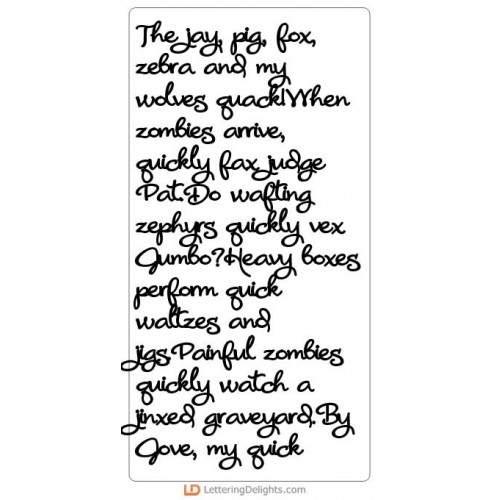 The jay, pig, fox,
zebra and my
wolves quack!When
zombies arrive,
quickly fax judge
Pat.Do wafting
zephyrs quickly vex
Jumbo?Heavy boxes
perform quick
waltzes and
jigs.Painful zombies
quickly watch a
jinxed graveyard.By
Jove, my quick
LD LetteringDelights.com